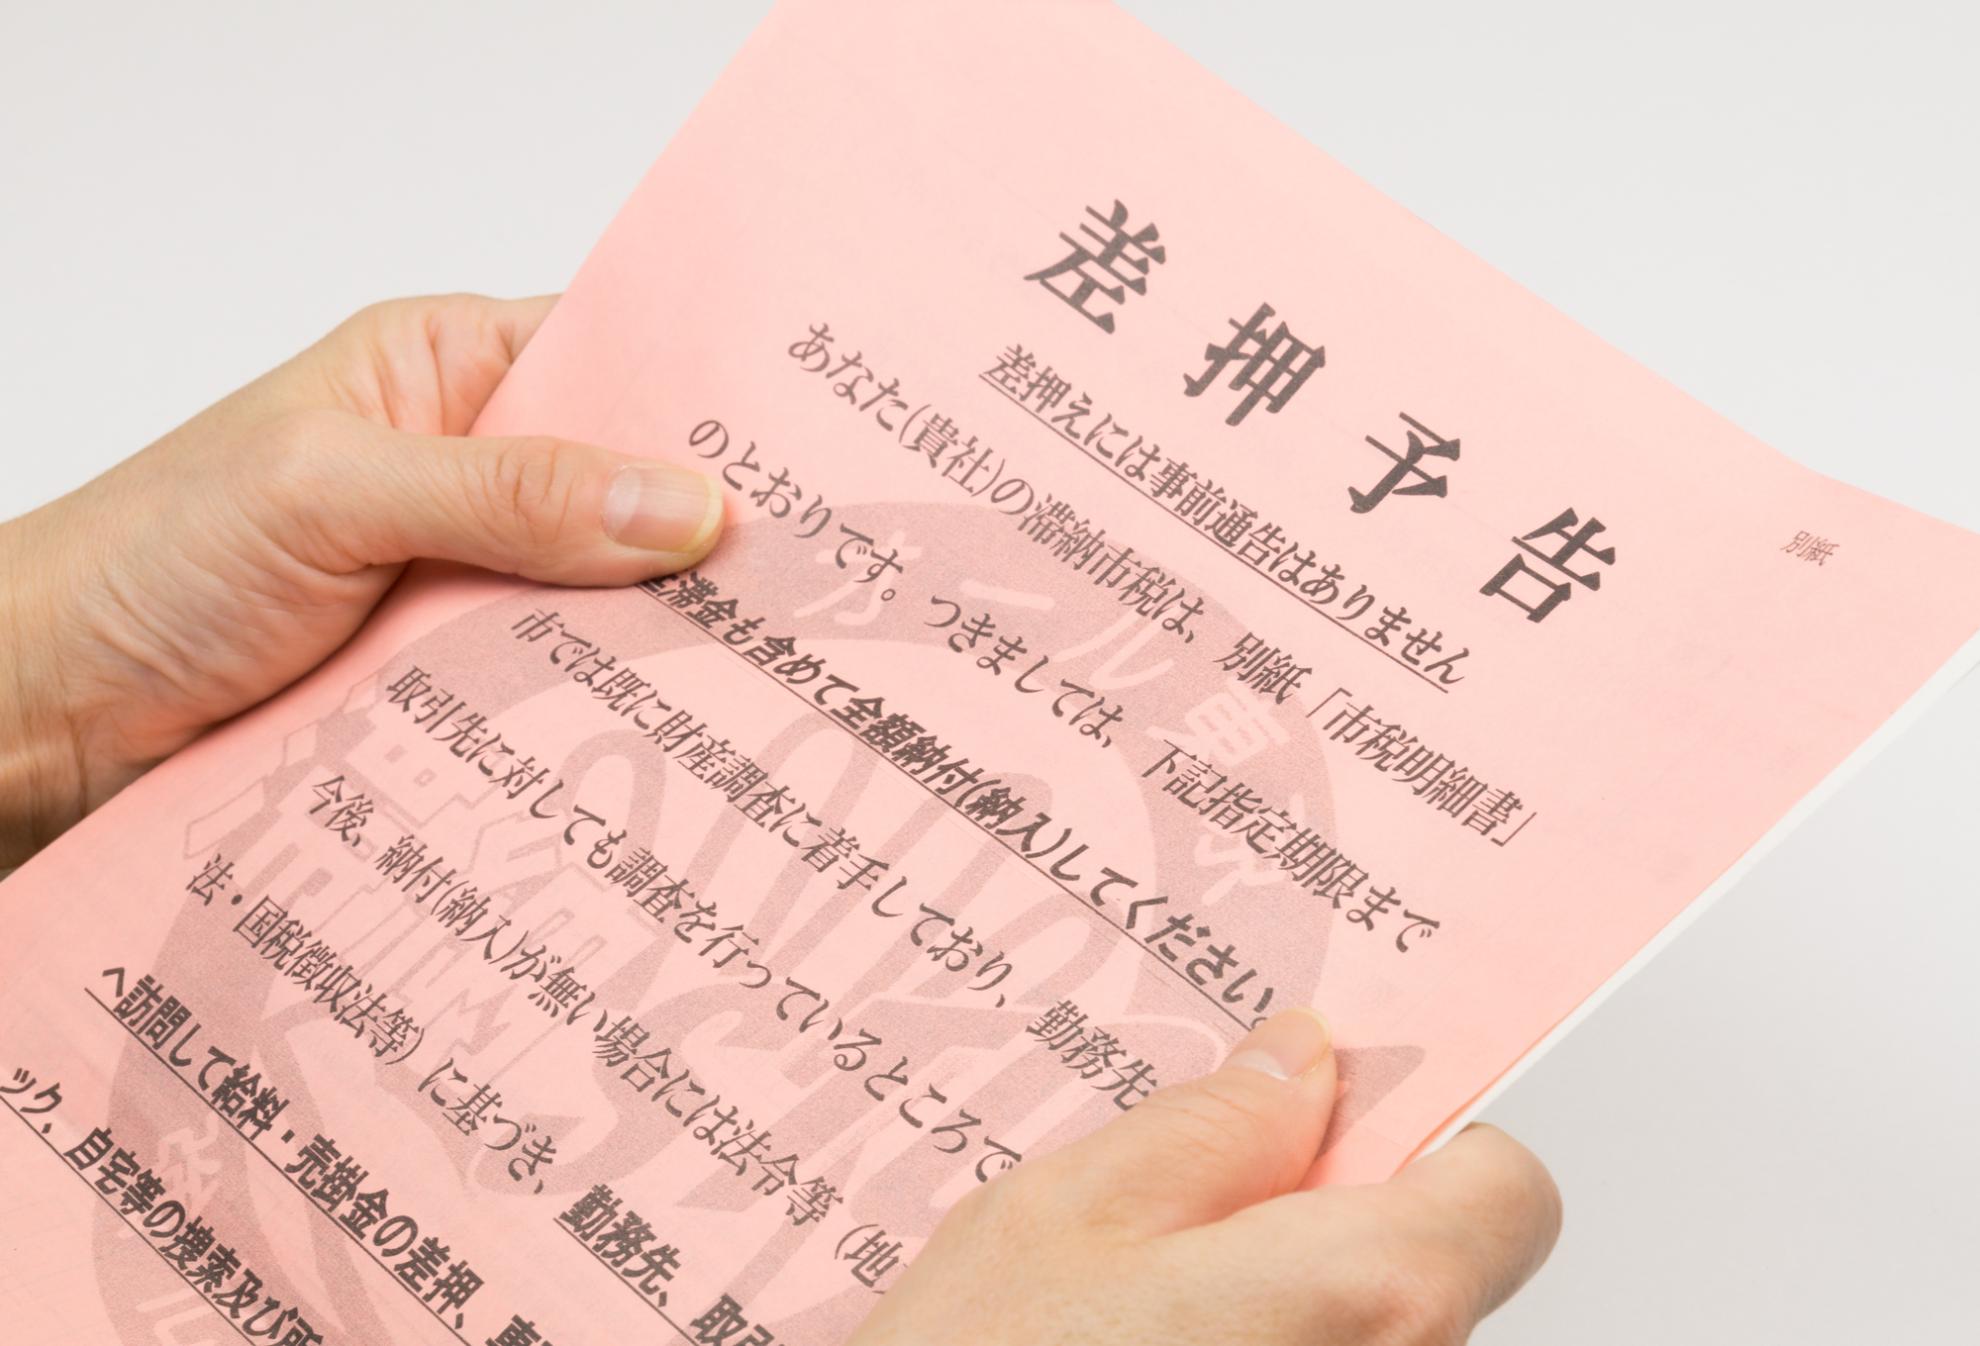 別紙
差押予告
差押えには事前通告はありません
あなた(貴社)の滞納市税は、別紙「市税明細書」
のとおりです。つきましては、下記指定期限まで
滞金も含めて全額納付(納入)してください。
市では既に財産調査に着手しており、勤務先
取引先に対しても調査を行っているところで
今後、納付(納入)が無い場合には法令等（地
法・国税徴収法等）に基づき、勤務先、取引
へ訪問して給料・売掛金の差押、
ック、自宅等の捜索及び所
オール東京